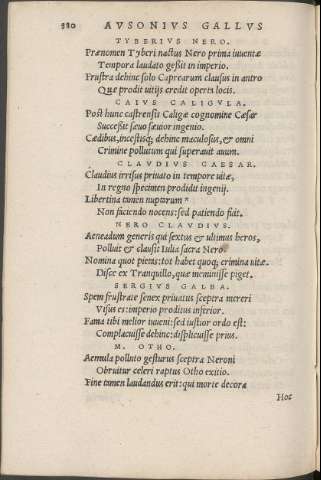 520 AVSONIVS GALLVS
TYBERIVS NERO.
Prænomen Tyberi nactus Nero prima iuuentæ
Tempora laudato gessit in imperio.
Frustra dehinc solo Caprearum clausus in antro
Quæ prodit uitijs credit operta locis.
CAIVS CALIGVLA.
Post hunc castrensis Caligæ cognomine Cæsar
Successit sæuo sæuior ingenio.
Cædibus, incestisq; dehinc maculosus, & omni
Crimine pollutum qui superauit auum.
CLAVDIVS CAESAR.
Claudius irrisus priuato in tempore uitæ,
In regno specimen prodidit ingenij.
Libertina tamen nuptarum *
Non faciendo nocens: sed patiendo fuit.
NERO CLAVDIVS.
Aeneadum generis qui sextus & ultimus heros,
Polluit & clausit Iulia sacra Nero.
Nomina quot pietas: tot habet quoq; crimina uitæ.
Disce ex Tranquillo, quæ meminisse piget.
SERGIVS GALBA.
Spem frustrate senex priuatus sceptra mereri
Visus es: imperio proditus inferior.
Fama tibi melior iuueni: sed iustior ordo est:
Complacuisse dehinc: displicuisse prius.
M. OTHO.
Aemula polluto gesturus sceptra Neroni
Obruitur celeri raptus Otho exitio.
Fine tamen laudandus erit: qui morte decora
Hoc